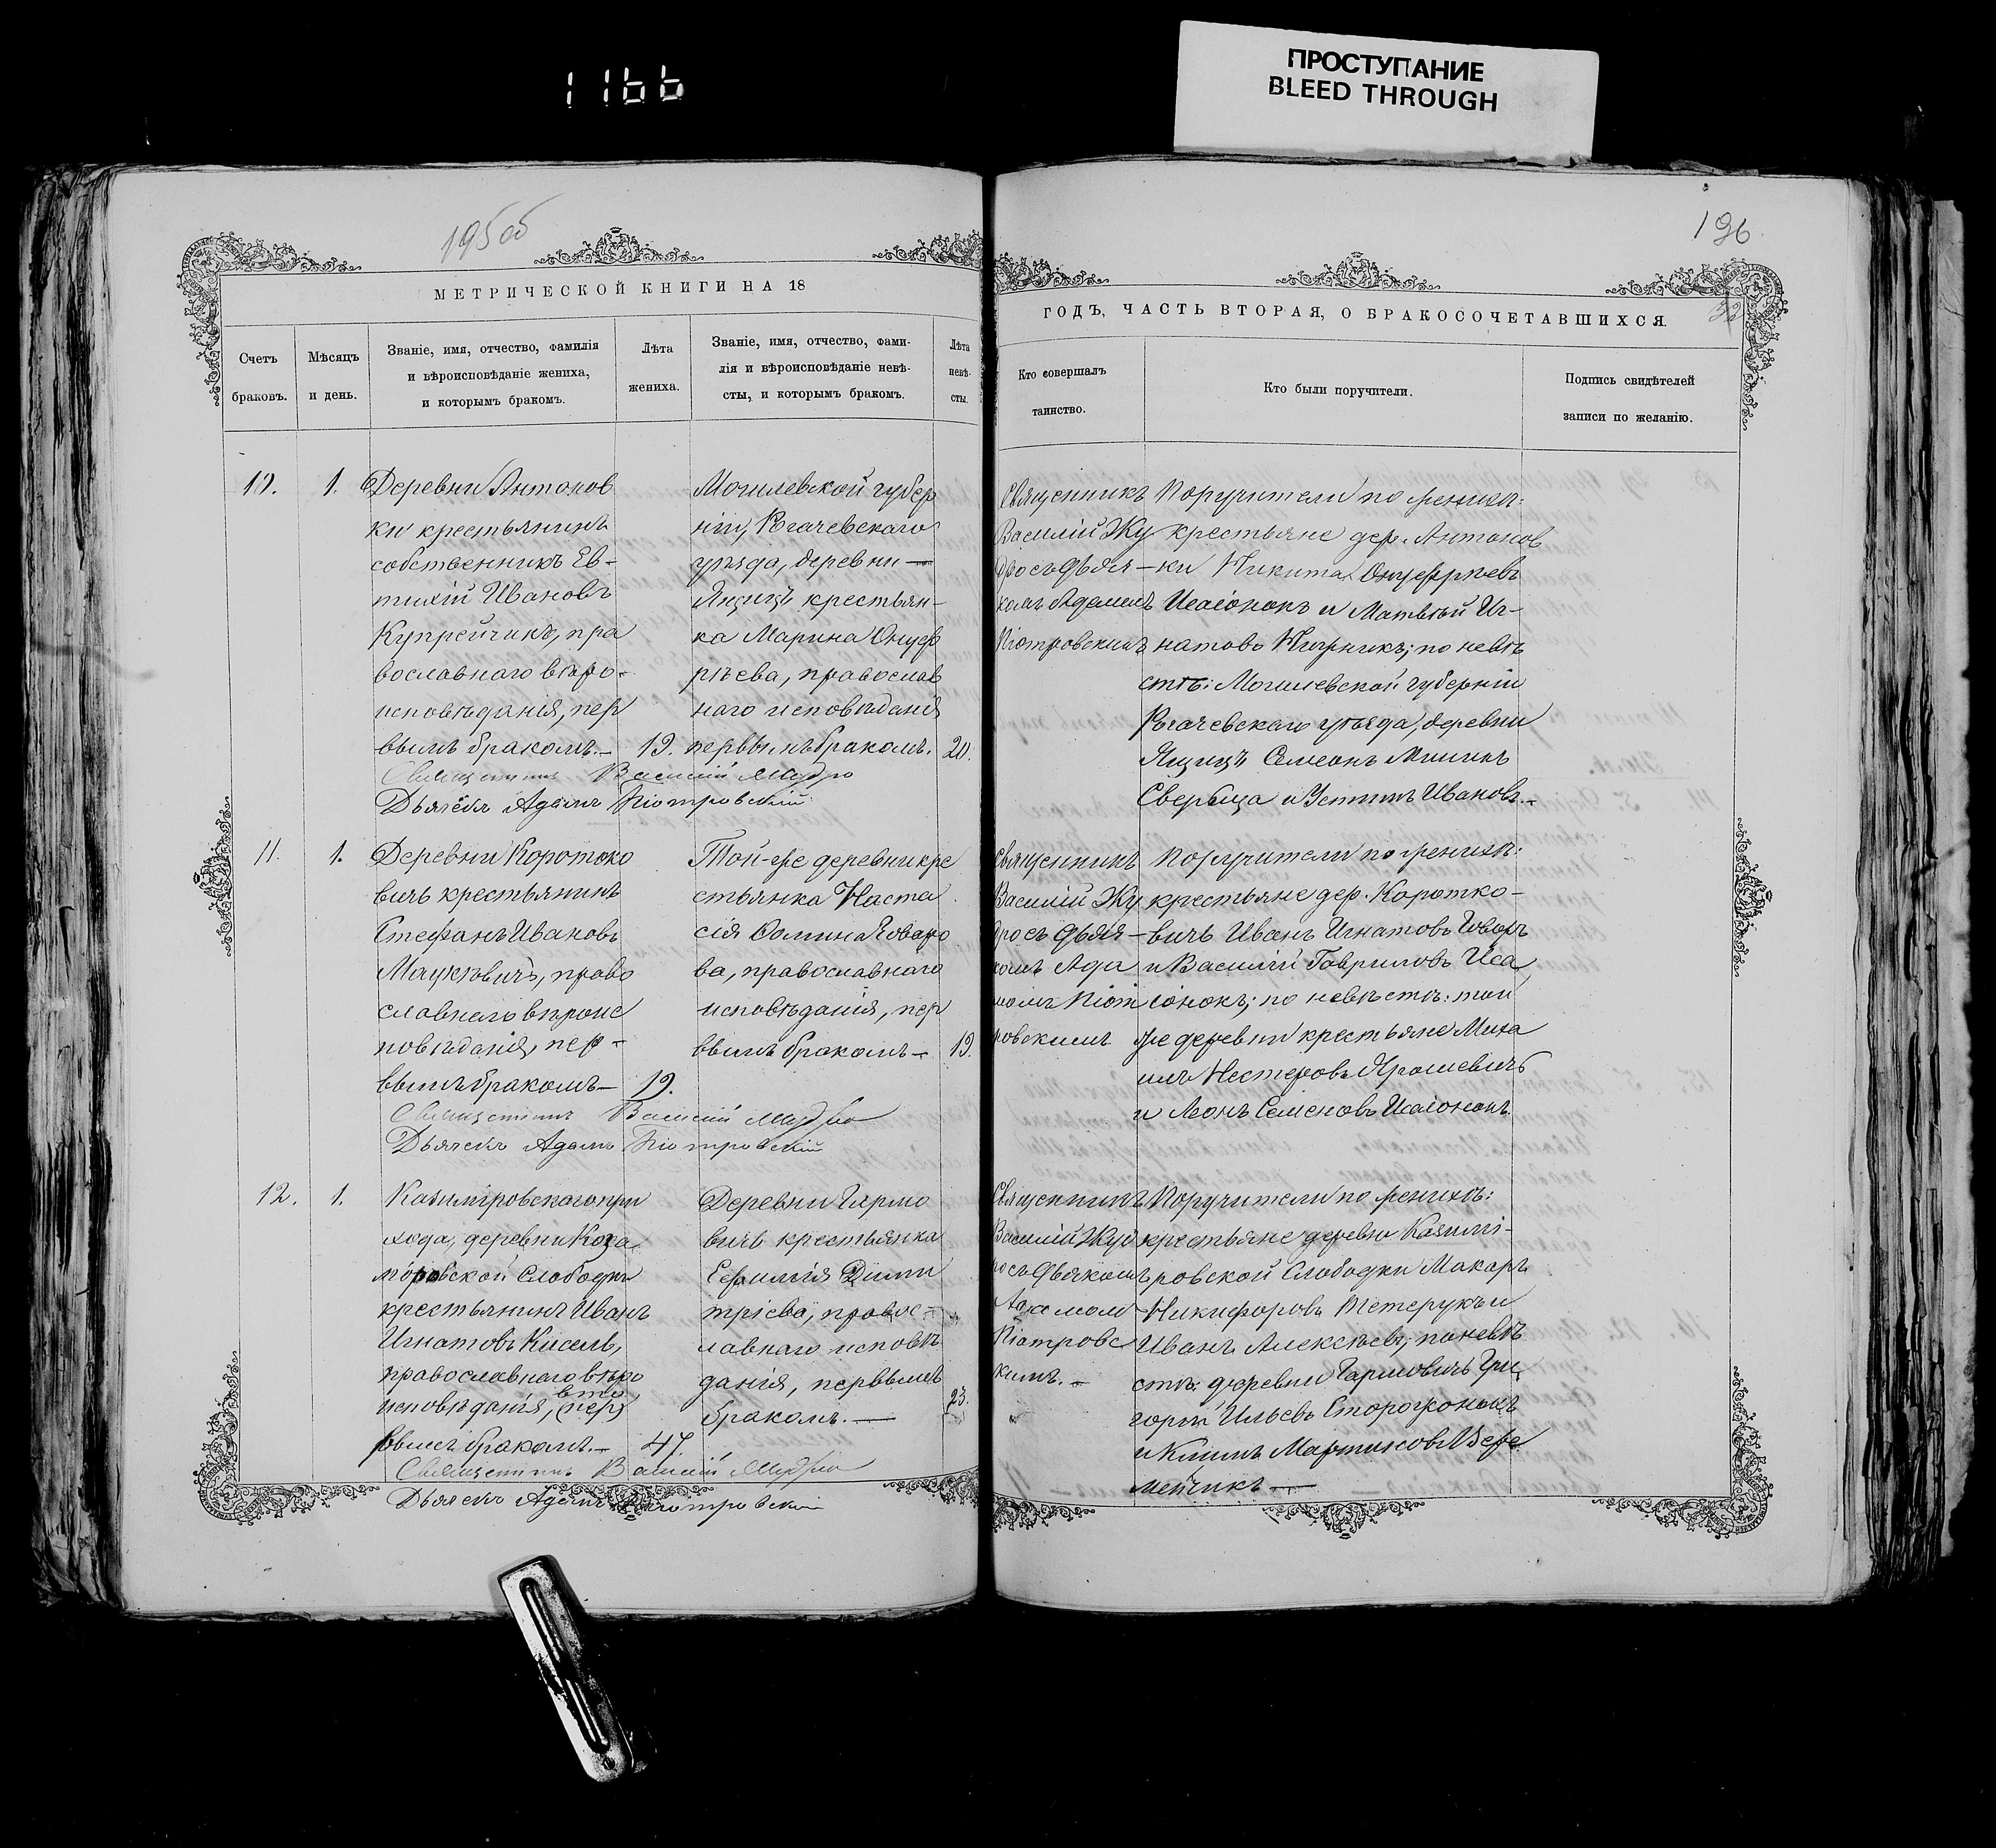 1166
ПРОСТУПАНИЕ
BLEED THROUGH
195об
196
32
МЕТРИЧЕСКОЙ КНИГИ НА 18
ГОДЪ, ЧАСТЬ ВТОРАЯ, О БРАКОСОЧЕТАВШИХСЯ.
Счетъ
браковъ.
Мѣсяцъ
и день.
Званіе, имя, отчество, фамилія
и вѣроисповѣданіе жениха,
и которымъ бракомъ.
Лѣта
жениха.
Званіе, имя, отчество, фами-
лія и вѣроисповѣданіе невѣ-
сты, и которымъ бракомъ.
Лѣта
невѣ-
сты.
Кто совершалъ
таинство.
Кто были поручители.
Подпись свидѣтелей
записи по желанію.
10.
1.
Деревни Антонов
ки крестьянинъ
собственникъ Ев-
тихій Ивановъ
Купрейчикъ, пра
вославнаго вѣро-
исповѣданія, пер
вымъ бракомъ.-
19.
Могилевской губер
ніи, Рогачевскаго
уѣзда, деревни —
Ящицъ крестьян-
ка Марина Онуф
ріева, православ
наго исповѣданія
первымъ бракомъ.
20.
Священникъ
Василій Жу
дро съ дьяч-
комъ Адамомъ
Піотровскимъ
Поручители по женихѣ:
крестьяне дер. Антонов
ки Никита Онуфріевъ
Исаіонокъ и Матвѣй Иг-
натовъ
по невѣ
стѣ: Могилевской губерніи
Рогачевскаго уѣзда, деревни
Ящицъ Семеонъ Мининъ
и Устинъ Ивановъ.-
Священникъ Василій Жудро
Дьячекъ Адамъ Піотровскій
11.
1.
Деревни Коротко
вичъ крестьянинъ
Стефанъ Ивановъ
Мацкевичъ, право
славнаго вѣроис
повѣданія, пер-
вымъ бракомъ-
19.
Той-же деревни кре
стьянка Наста
сія Ѳомина
ва, православнаго
исповѣданія, пер
вымъ бракомъ-
19.
Священникъ
Василій Жу
дро съ дьяч-
комъ Ада
момъ Піот
ровскимъ
Поручители по женихѣ:
крестьяне дер. Коротко-
вичъ Иванъ Игнатовъ
и Василій Гавриловъ Иса
іонокъ; по невѣстѣ: той
же деревни крестьяне Миха
илъ Нестеровъ Ярошевичъ
и Леонъ Семеновъ Исаіонокъ
Священникъ Василій Жудро
Дьячекъ Адамъ Піотровскій
12.
1.
Казимировскаго при
хода, деревни
Слободки
крестьянинъ Иванъ
Игнатовъ Кисель,
православнаго вѣро
исповѣданія, (пер)
вто
вымъ бракомъ.-
47.
Деревни Гармо
вичъ крестьянка
Евфимія Дими
тріева, правос-
лавнаго исповѣ
данія, первымъ
бракомъ.—
23.
Священникъ
Василій Жуд
ро съ дьякомъ
Адамом
Піотровс
кимъ.-
Поручители по женихѣ:
крестьяне деревни Казими-
ровской Слободки Макаръ
Никифоровъ Тетерукъ и
Иванъ Алексѣевъ; по невѣ
стѣ: деревни Гармовичъ Гри
горій Ильевъ Сторожонокъ
и Климъ Мартиновъ Вере
мейчикъ—
Священникъ Василій Жудро
Дьячекъ Адамъ Піотровскій